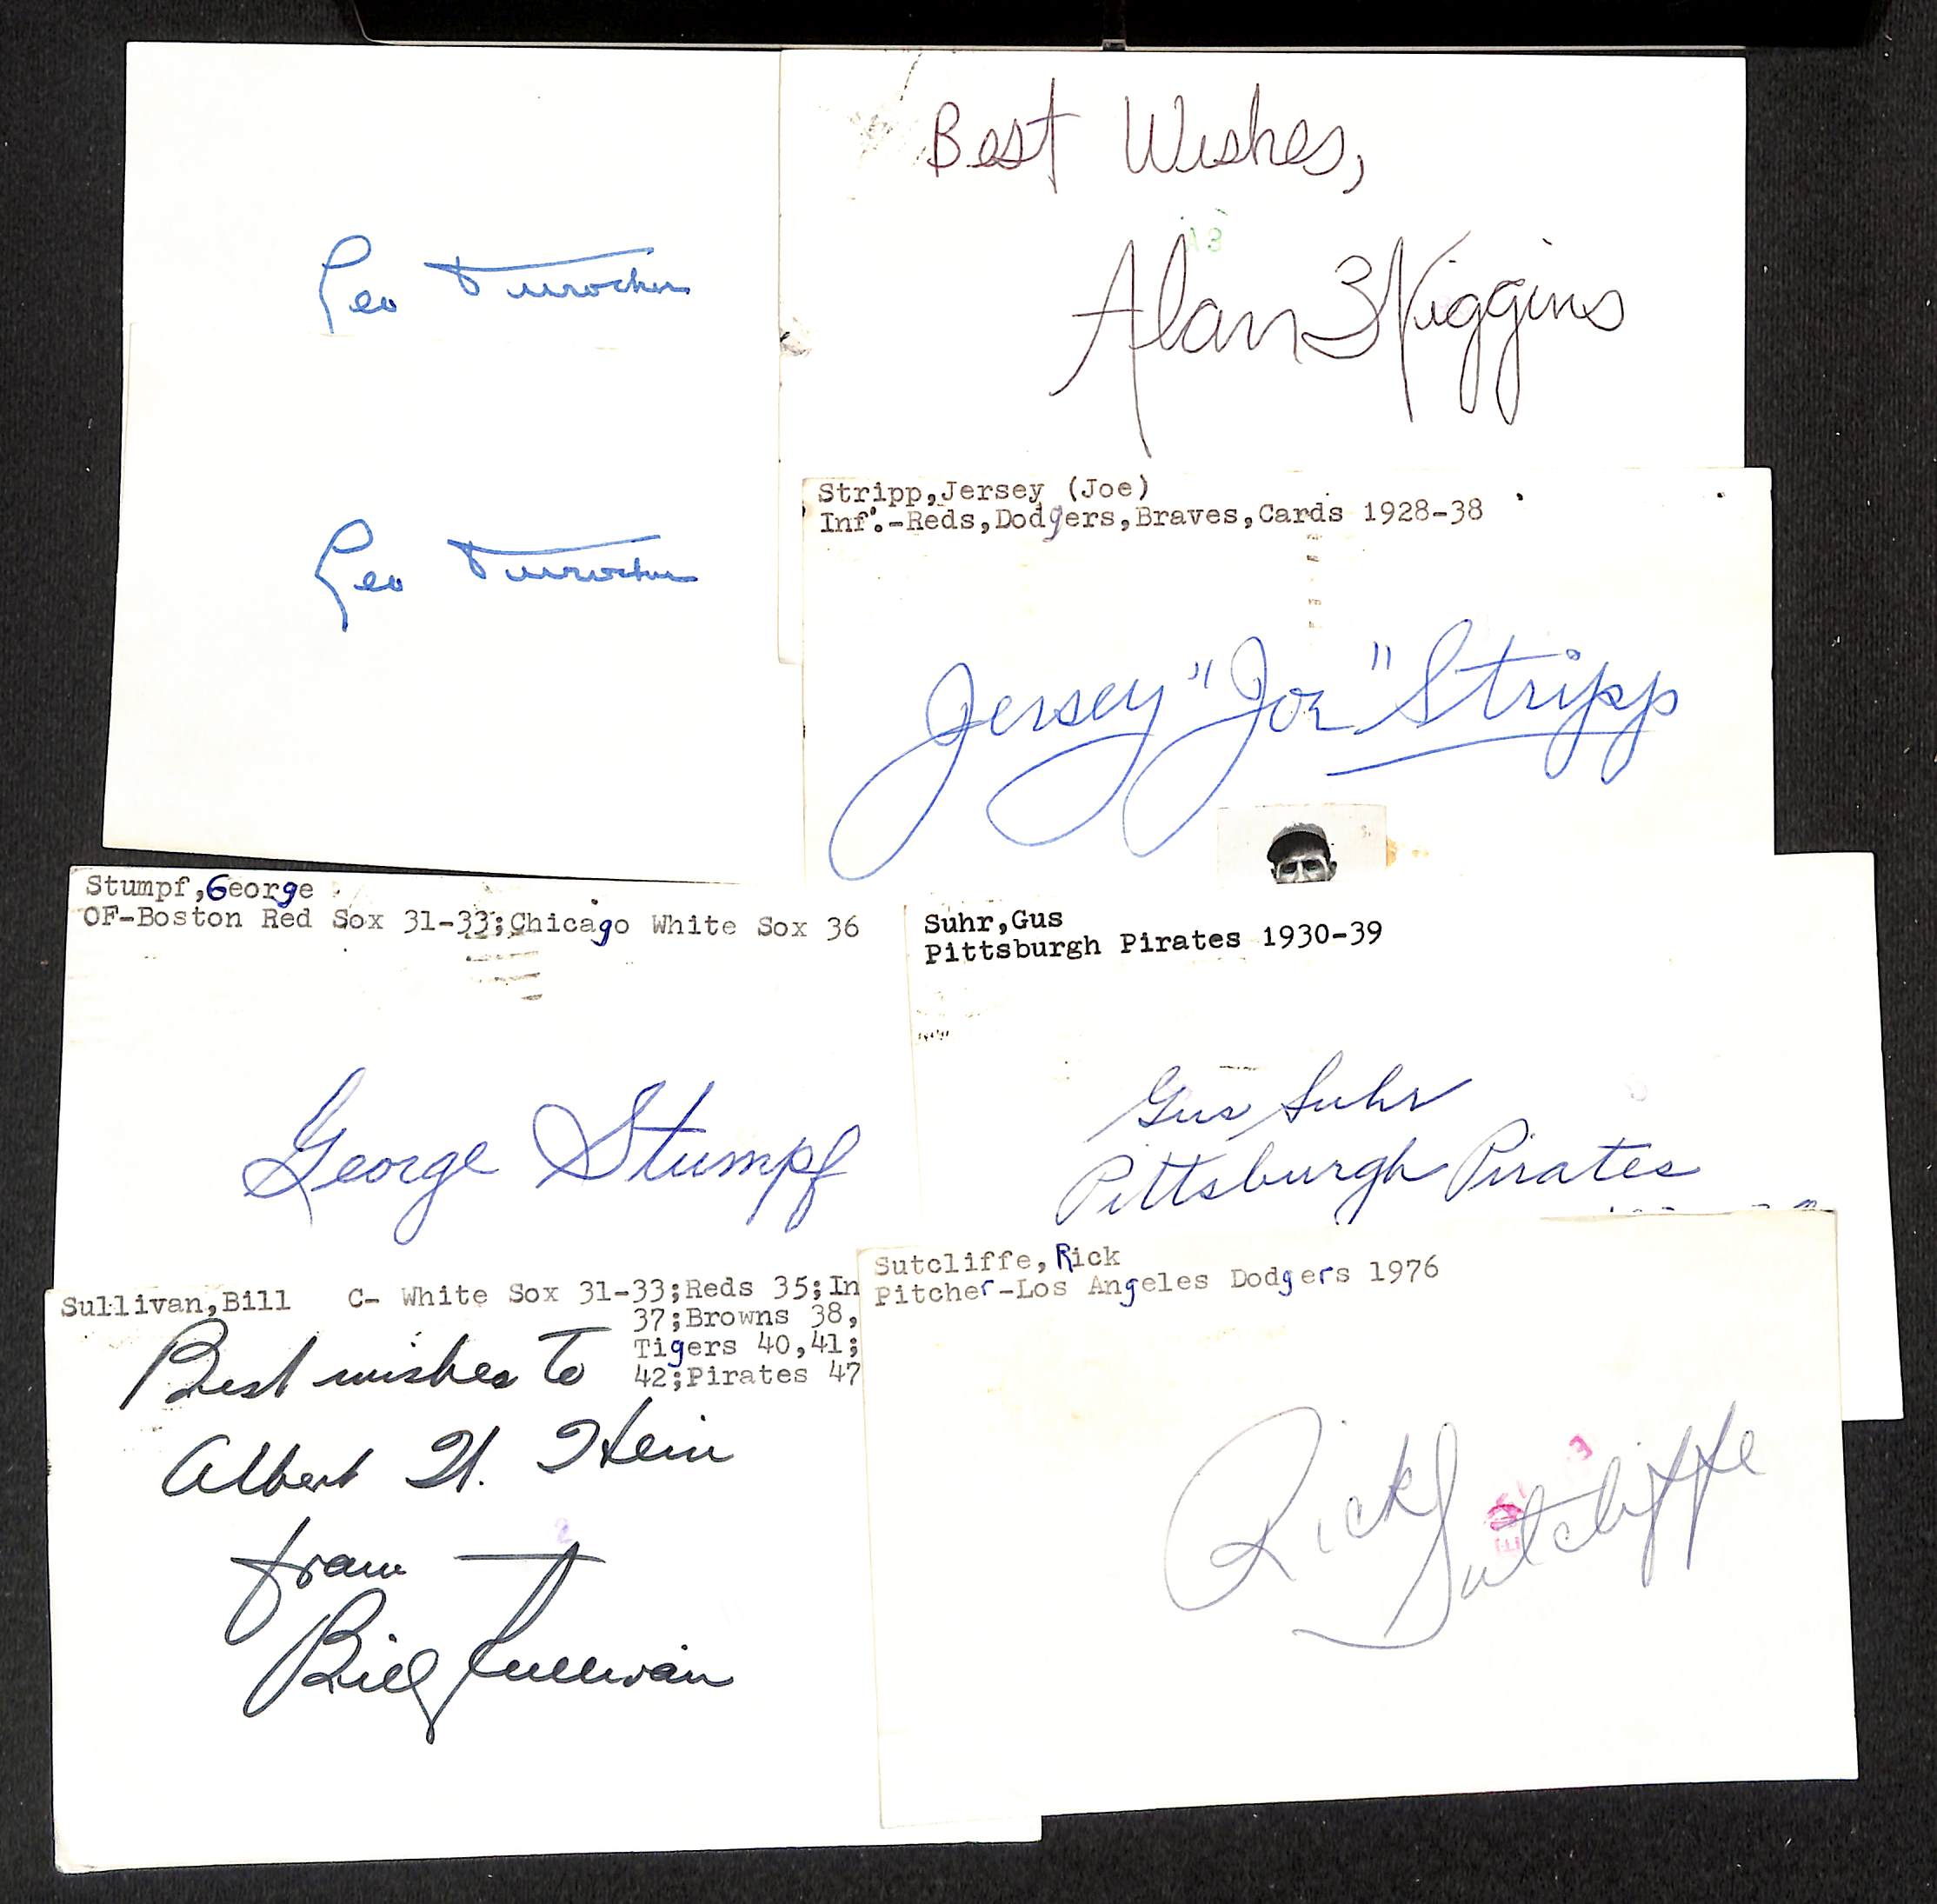 Leo Durocher
Leo Durocher
Best Wishes,
Alan Wiggins
Stripp,Jersey (Joe)
Inf.-Reds,Dodgers,Braves,Cards 1928-38
Jersey "Joe" Stripp
Stumpf,George
OF-Boston Red Sox 31-33;Chicago White Sox 36
George Stumpf
Suhr,Gus
Pittsburgh Pirates 1930-39
Gus Suhr
Pittsburgh Pirates
Sullivan,Bill C- White Sox 31-33;Reds 35;In
37;Browns 38,
Tigers 40,41;
42;Pirates 47
Best wishes to
Albert H. Stein
from
Bill Sullivan
Sutcliffe,Rick
Pitcher-Los Angeles Dodgers 1976
Rick Sutcliffe